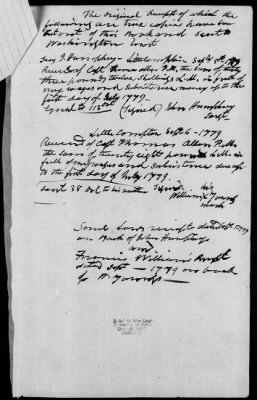 The original Receipts of which the
following are true copies have been
cut out of this book and sent to
Washington
Little Compton Sept 9th 1779
Received of Capt Thomas Allen P.M. the Sum of thirty
three pounds twelve Shillings L.M. in full of
my wages and Subsistence money up to the
first day of July 1779
Equal to (Signed) John Humphrey
Sergt
Little Compton Sept 6 - 1779
Received of Capt Thomas Allen P.M.
the sum of twenty eight pounds L.M. in
full of my wages and Subsistence due up
to the first day of July 1779
sent 38 Dol to his mother Signed his
William X
mark
Same Sans receipt dated Sept 1779
on back of John Humphreys
and
Francis Williams Rcpt
dated Sept - 1779 on back
of W.